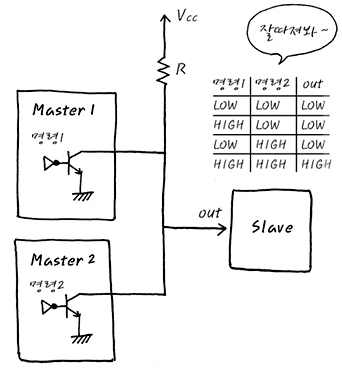 Vcc
잘따져봐~
R
명령1 명령2 out
LOW LOW LOW
HIGH LOW LOW
LOW HIGH LOW
HIGH HIGH HIGH
Master 1
명령1
out
Slave
Master 2
명령2